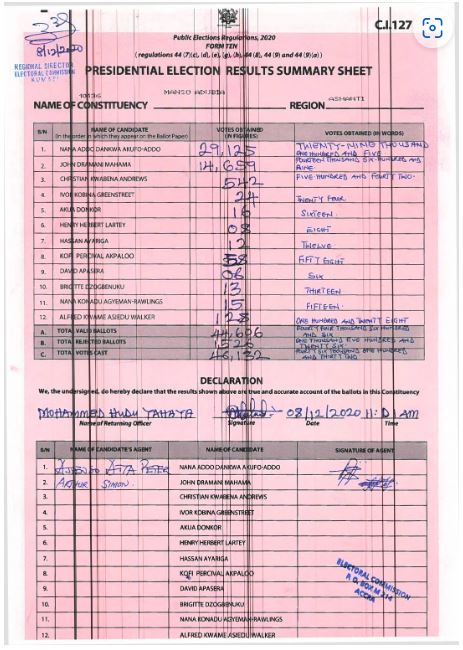 C.I.127
Public Elections Regulations, 2020
FORM TEN
(regulations 44 (7)(c), (d), (e), (g), (h), 44(8), 44 (9) and 44(9)(a))
8/12/2020
REGIONAL DIRECTOR
ELECTORAL COMMISSION
KUMASI
PRESIDENTIAL ELECTION RESULTS SUMMARY SHEET
NAME OF CONSTITUENCY MANSO ADUBIA REGION ASHANTI
S/N NAME OF CANDIDATE (In the order in which they appear on the Ballot Paper) VOTES OBTAINED (IN FIGURES) VOTES OBTAINED (IN WORDS)
1. NANA ADDO DANKWA AKUFO-ADDO TWENTY-NINE THOUSAND ONE HUNDRED AND FIVE
2. JOHN DRAMANI MAHAMA FOURTEEN THOUSAND SIX-HUNDRED AND NINE
3. CHRISTIAN KWABENA ANDREWS 542 FIVE HUNDRED AND FOURTY TWO.
4. IVOR KOBINA GREENSTREET 24 TWENTY FOUR
5. AKUA DONKOR 16 SIXTEEN.
6. HENRY HERBERT LARTEY 08 EIGHT
7. HASSAN AYARIGA 12 TWELVE
8. KOFI PERCIVAL AKPALOO 58 FIFTY EIGHT
9. DAVID APASERA 06 SIX
10. BRIGITTE DZOGBENUKU 13 THIRTEEN
11. NANA KONADU AGYEMAN-RAWLINGS 15 FIFTEEN.
12. ALFRED KWAME ASIEDU WALKER 128 ONE HUNDRED AND TWENTY EIGHT
A. TOTAL VALID BALLOTS 44,606 FOURTY FOUR THOUSAND SIX HUNDRED AND SIX
B. TOTAL REJECTED BALLOTS 1526 ONE THOUSAND FIVE HUNDRED AND TWENTY SIX
C. TOTAL VOTES CAST 46,132 FOURTY SIX THOUSAND ONE HUNDRED AND THIRTY TWO
DECLARATION
We, the undersigned, do hereby declare that the results shown above are true and accurate account of the ballots in this Constituency
MOHAMMED HUDU YAHAYA 08/12/2020 AM
Name of Returning Officer Signature Date Time
S/N NAME OF CANDIDATE'S AGENT NAME OF CANDIDATE SIGNATURE OF AGENT
1. ATTA PETER NANA ADDO DANKWA AKUFO-ADDO
2. ARTHUR SIMON. JOHN DRAMANI MAHAMA
3. CHRISTIAN KWABENA ANDREWS
4. IVOR KOBINA GREENSTREET
5. AKUA DONKOR
6. HENRY HERBERT LARTEY
7. HASSAN AYARIGA
8. KOFI PERCIVAL AKPALOO
9. DAVID APASERA
10. BRIGITTE DZOGBENUKU
11. NANA KONADU AGYEMAN-RAWLINGS
12. ALFRED KWAME ASIEDU WALKER
ELECTORAL COMMISSION
P. O. BOX M 214
ACCRA